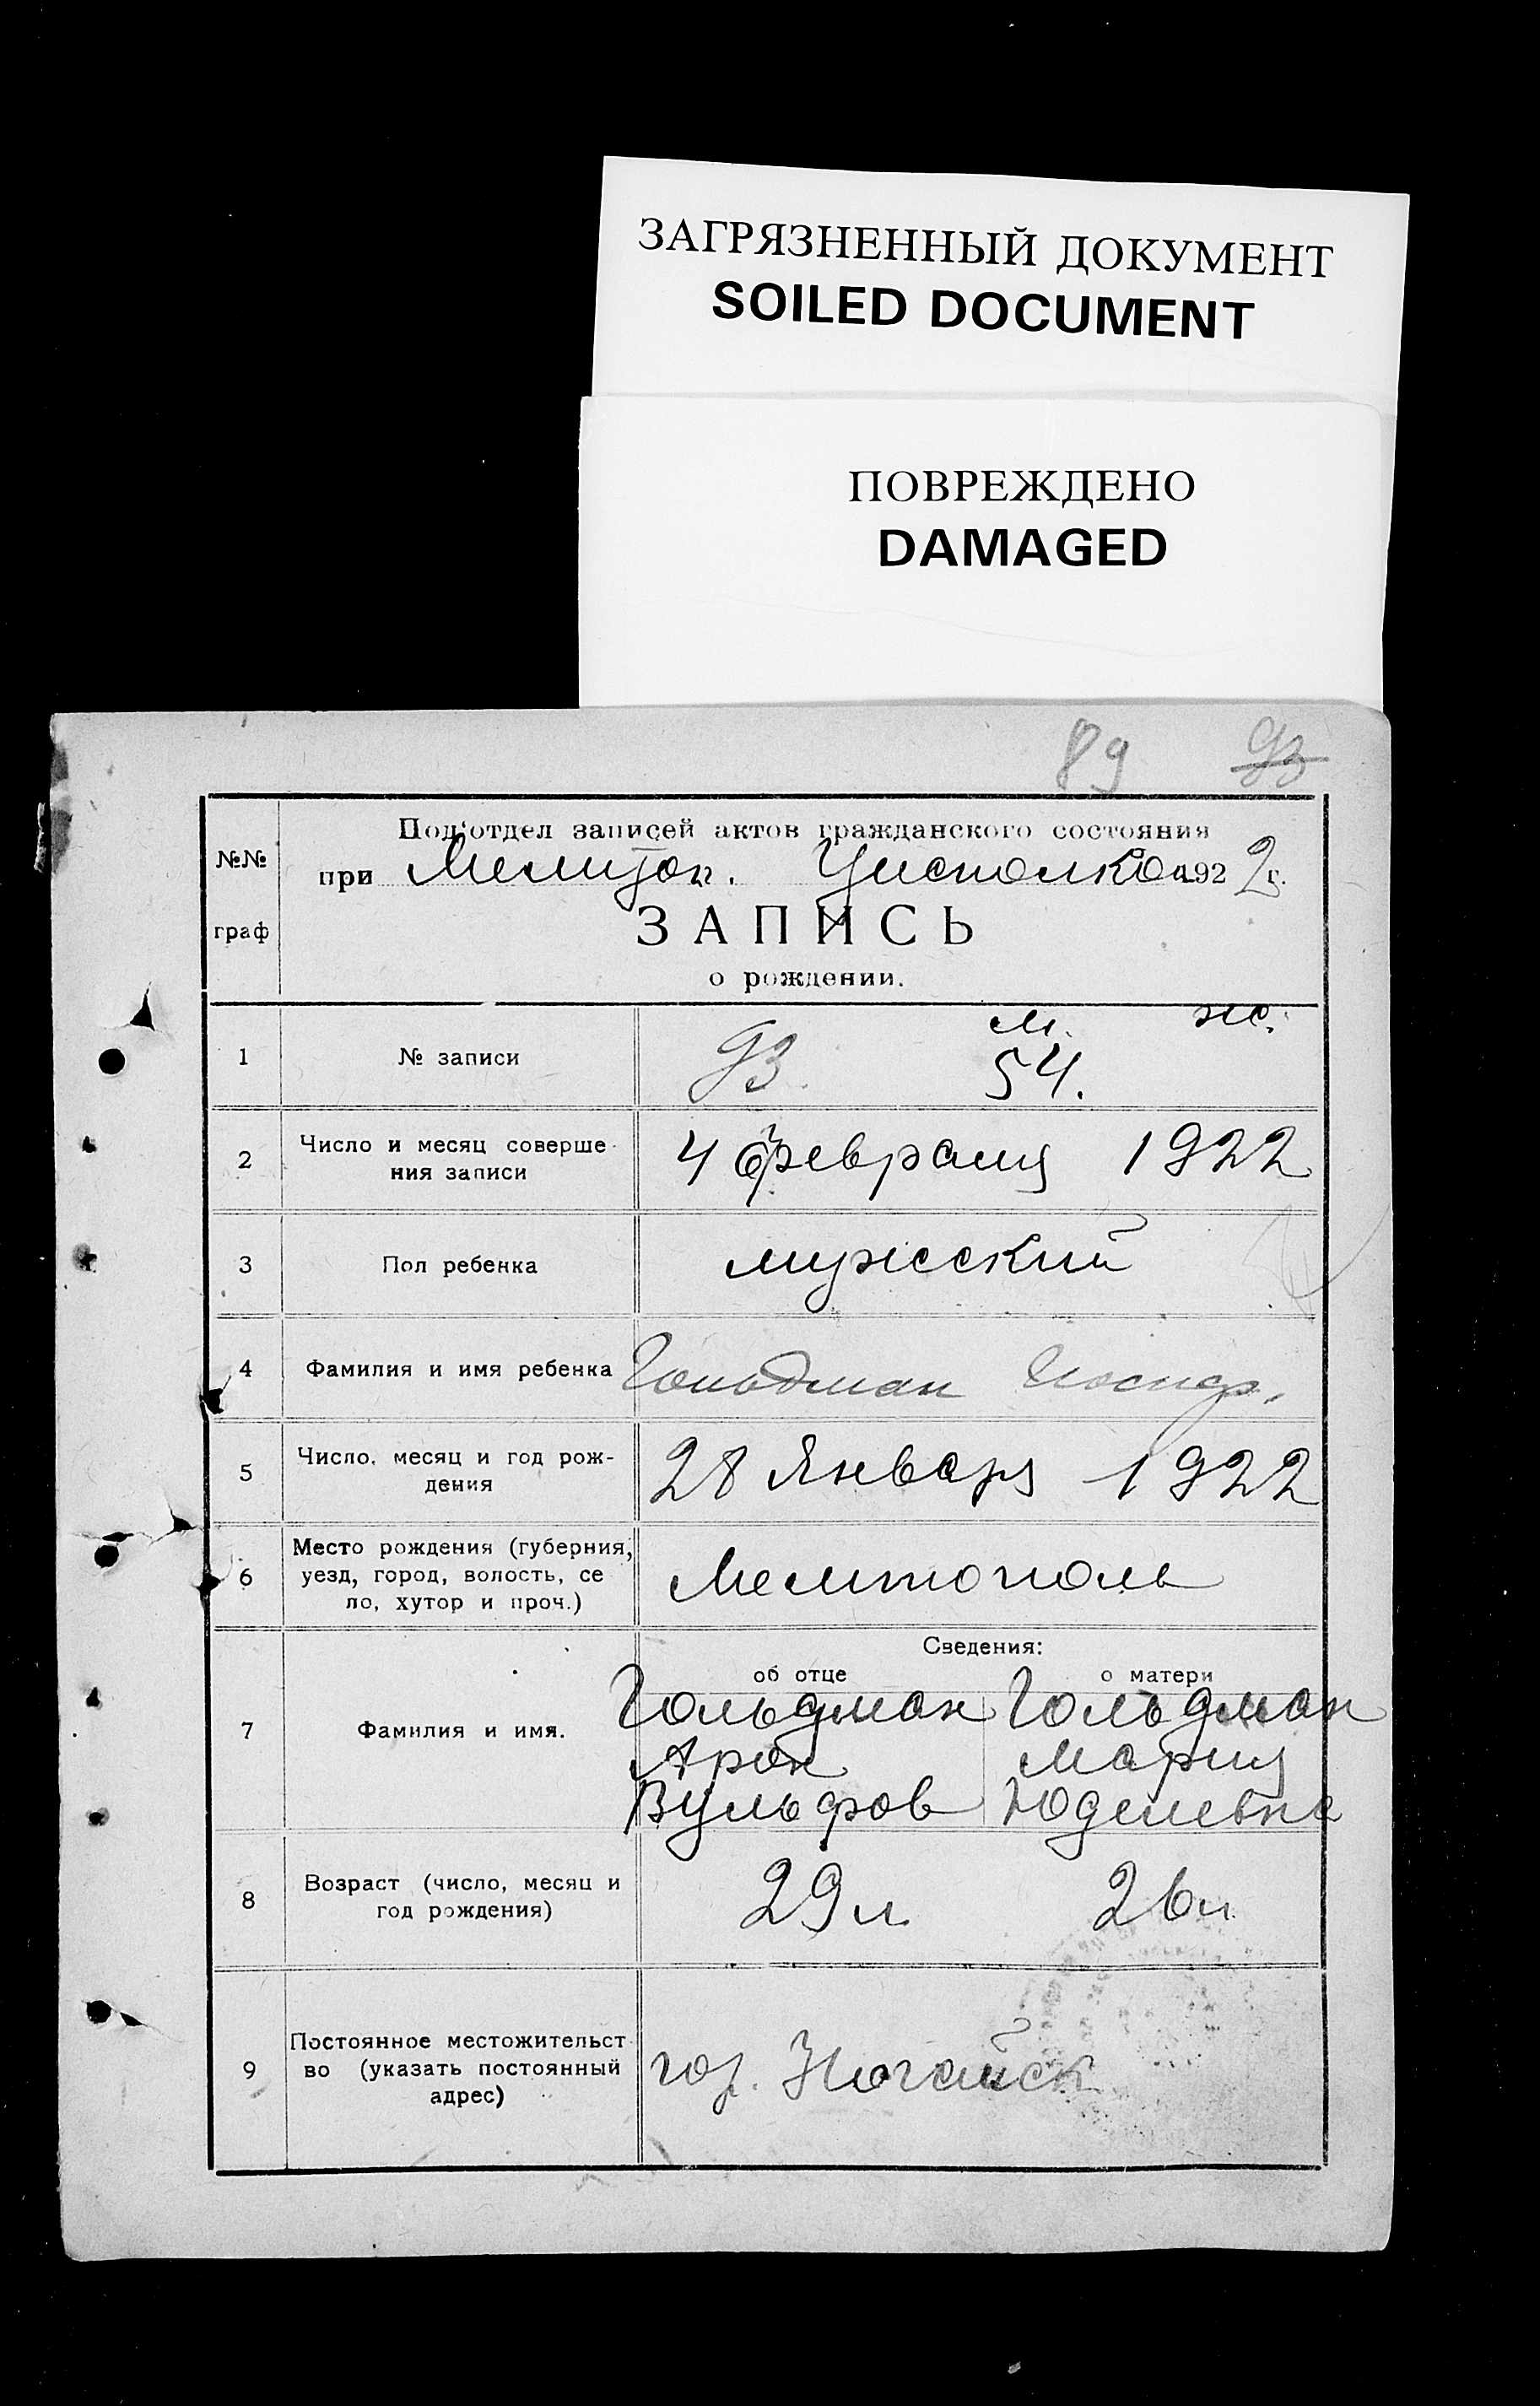 ЗАГРЯЗНЕННЫЙ ДОКУМЕНТ
SOILED DOCUMENT
ПОВРЕЖДЕНО
DAMAGED
89 93
Под'отдел записей актов гражданского состояния
№№ граф
при Мелитоп. Уисполкоа 1922 г.
ЗАПИСЬ
о рождении.
м. ж.
1 № записи 93. 54.
2 Число и месяц соверше- 4 февраля 1922
ния записи
3 Пол ребенка мужеский
4 Фамилия и имя ребенка Гольдман Иосиф.
5 Число, месяц и год рож- 28 Января 1922
дения
Место рождения (губерния,
6 уезд, город, волость, се Мелитополь
ло, хутор и проч.)
Сведения:
об отце о матери
Гольдман Гольдман
7 Фамилия и имя. Арон Мария
Вульфов Юделевна
8 Возраст (число, месяц и 29 л 26 л
год рождения)
Постоянное местожительст
9 во (указать постоянный гор. Ногайск
адрес)